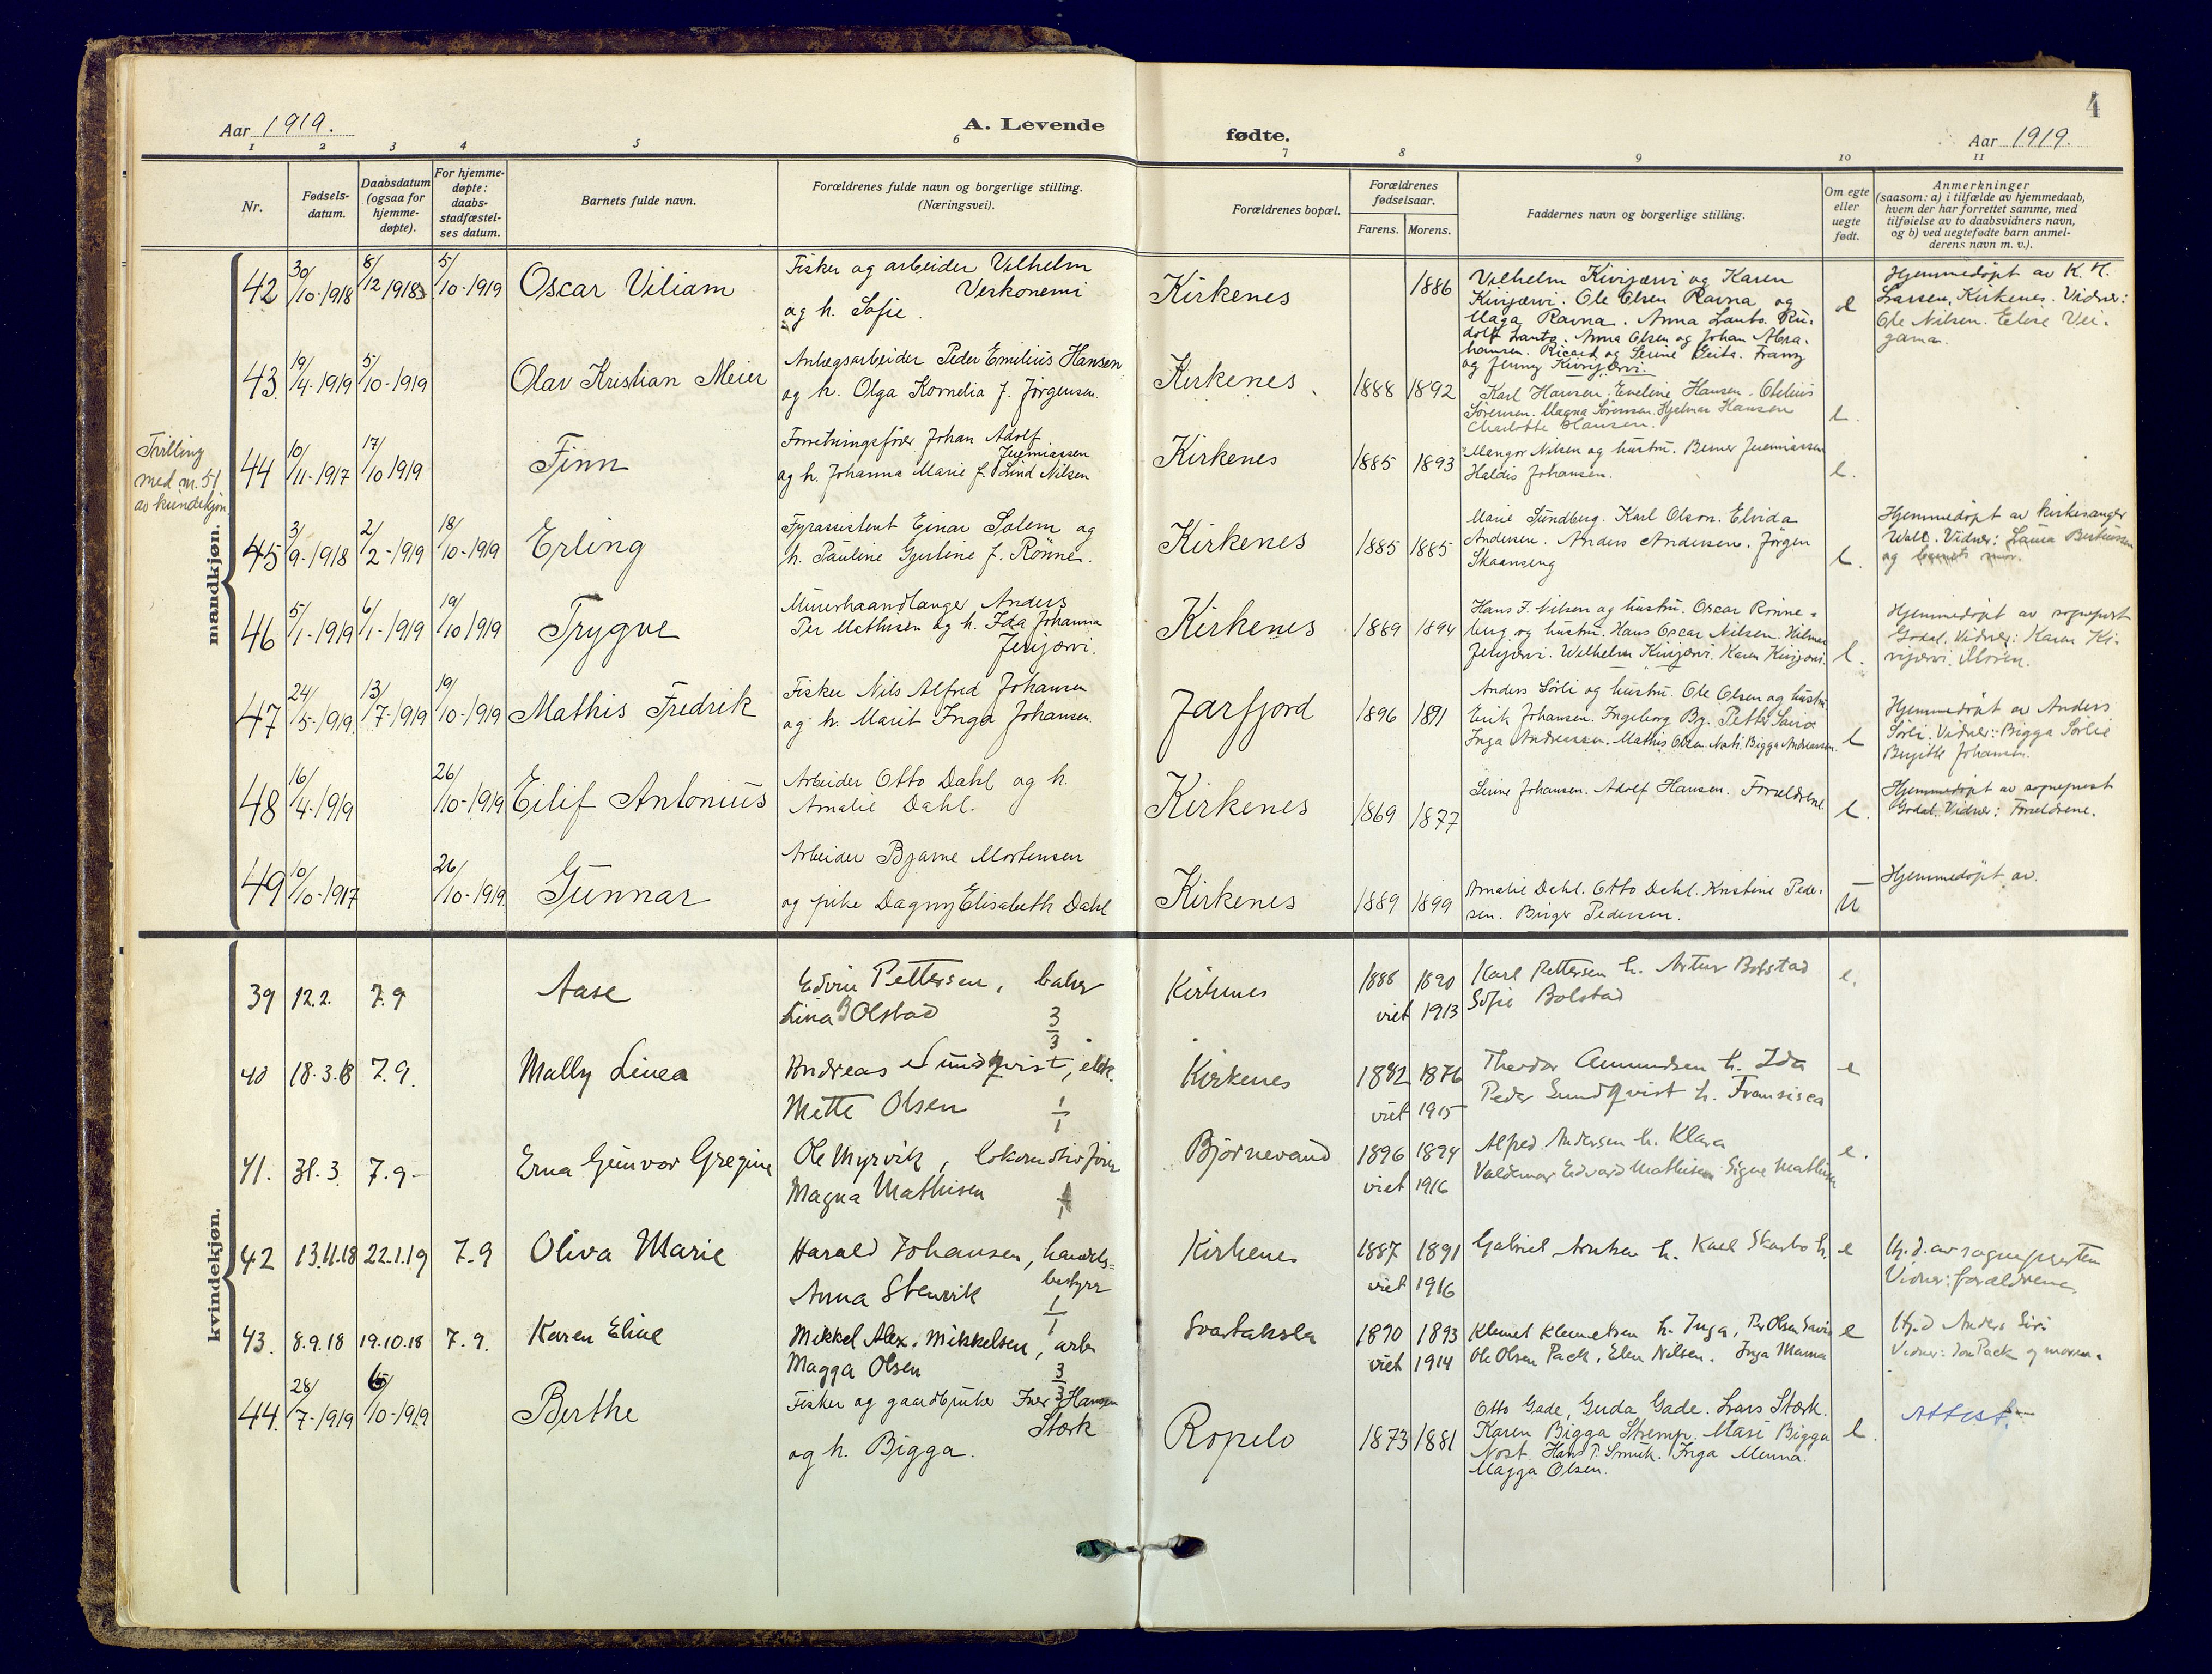 4
Aar 1919.
A. Levende
fødte.
Aar 1919.
1 2 3 4 5 6 7 8 9 10 11
Nr.
Fødsels-
datum.
Daabsdatum
(ogsaa for
hjemme-
døpte).
For hjemme-
døpte:
daabs-
stadfæstel-
ses datum.
Barnets fulde navn.
Forældrenes fulde navn og borgerlige stilling.
(Næringsvei).
Forældrenes bopæl.
Forældrenes
fødselsaar.
Farens. Morens.
Faddernes navn og borgerlige stilling.
Om egte
eller
uegte
født.
Anmerkninger
(saasom: a) i tilfælde av hjemmedaab,
hvem der har forrettet samme, med
tilføielse av to daabsvidners navn,
og b) ved uegtefødte barn anmel-
derens navn m. v.).
mandkjøn.
42 30/10-1918 8/12 1918 5/10-1919 Oscar Viliam
Fisker og arbeider Vilhelm
Verkonemi
og h. Sofie.
Kirkenes
1886
Vilhelm Kivijærvi og Karen
Kivijærvi. Ole Olsen Ravna og
Maga Ravna. Anna Lanto. Ru-
dolf Lanto. Anna Olsen og Johan Abra-
hamsen. Ricard og Serine Beita. Franz
og Jenny Kivijærvi.
e
Hjemmedøpt av K. H.
Larsen, Kirkenes. Vidner:
Ole Nilsen. Elise Vei-
gama.
43. 19/4-1919 5/10-1919 Olav Kristian Meier
Anlægsarbeider Peder Emilius Hansen
og h. Olga Kornelia f. Jørgensen
Kirkenes
1888 1892
Karl Hansen. Eveline Hansen. Obelius
Sørensen. Magna Sørensen. Hjalmar Hansen
Charlotte Hansen.
e.
Tvilling
med nr. 51
av kvindekjøn
44 10/11-1917 17/10 1919 Finn
Forretningsfører Johan Adolf
Jeremiassen
og h. Johanna Marie f. Lind Nilsen
Kirkenes
1885 1893
Mangor Nilsen og hustru. Berner Jeremiassen
Haldis Johansen.
e.
45 3/9-1918 2/2-1919 18/10-1919 Erling
Fyrassistent Einar Solem og
h. Pauline Gjertine f. Rönne.
Kirkenes
1885 1885
Marie Sundberg. Karl Olson. Elvida
Andersen. Anders Andersen. Jørgen
Skaanseng
e.
Hjemmedøpt av kirkesanger
Wall. Vidner: Laura Bertiussen
og barnets mor.
46 5/1-1919 6/1-1919 19/10 1919 Trygve
Murerhaandlanger Anders
Per Mathisen og h. Ida Johanna
Jenjærvi.
Kirkenes
1889 1894
Hans J. Nilsen og hustru. Oscar Rønne-
berg og hustru. Hans Oscar Nilsen. Hilmar
Jenjærvi. Wilhelm Kivijærvi. Karen Kivijærvi.
e.
Hjemmedøpt av sogneprest
Godal. Vidner: Karen Ki-
vijærvi. Moren.
47 24/5-1919 13/7-1919 19/10-1919 Mathis Fredrik
Fisker Nils Alfred Johansen
og h. Marit Inga Johansen.
Jarfjord
1896 1891
Anders Sørli og hustru. Ole Olsen og hustru
Erik Johansen. Ingeborg By. Petter Savio
Inga Andreassen. Mathis Olsen. Bigga Andreassen.
e
Hjemmedøpt av Anders
Sørli. Vidner: Bigga Sørlie
Birgitte Johansen.
48 16/4-1919 26/10-1919 Eilif Antonius
Arbeider Otto Dahl og h.
Amalie Dahl.
Kirkenes
1869 1877
Serine Johansen. Adolf Hansen. Forældrene.
e.
Hjemmedøpt av sogneprest
Godal. Vidner: Forældrene.
49 10/10-1917 26/10-1919. Gunnar
Arbeider Bjarne Mortensen
og pike Dagny Elisabeth Dahl
Kirkenes
1889 1899
Amalie Dahl. Otto Dahl. Kristine Peder-
sen. Birger Pedersen.
u
Hjemmedøpt av.
kvindekjøn.
39 12.2. 7.9 Aase
Edvin Pettersen, baker
Lina Bolstad 3/3
Kirkenes
1888 1890
viet 1913
Karl Pettersen h. Artur Bolstad
Sofie Bolstad
e.
40 18.3.18 7.9. Mally Linea
Andreas Lundqvist, elek.
Mette Olsen 1/1
Kirkenes
1882 1876
viet 1915
Theodor Amundsen h. Ida
Peder Lundqvist h. Fransisca
e
41. 31.3. 7.9- Erna Gunvor Gregine
Ole Myrvik, lokomotivfører
Magna Mathisen 1/1
Bjørnevand
1896 1894
viet 1916
Alfred Andersen h. Klara
Valdemar Edvard Mathisen Signe Mathisen
e.
42 13.11.18 22.1.19 7.9 Oliva Marie
Harald Johansen, handels-
bestyrer
Anna Stenvik 1/1
Kirkenes
1887 1891
viet 1916
Gabriel Arntzen h. Karl Skarbo h.
e
Hj. d. av sognepresten
Vidner: forældrene
43. 8.9.18 19.10.18 7.9. Karen Eline
Mikkel Alex. Mikkelsen, arb.
Magga Olsen 3/3
Svartaksla
1890 1893
viet 1914
Klemet Klemetsen h. Inga, Per Olsen Savio
Ole Olsen Pack, Elen Nilsen. Inga Manna
e
Hj.d Anders Siri
Vidner: Jon Pack og moren.
44. 28/7-1919 5/10-1919 Berthe
Fisker og gaardbruker Iver Hansen
Stærk
og h. Bigga.
Ropelv
1873 1881
Otto Gade, Gerda Gade. Lars Stærk.
Karen Bigga Stremp. Mari Bigga
Nost. Hans P. Smuk. Inga Menna.
Magga Olsen.
e.
Attest.